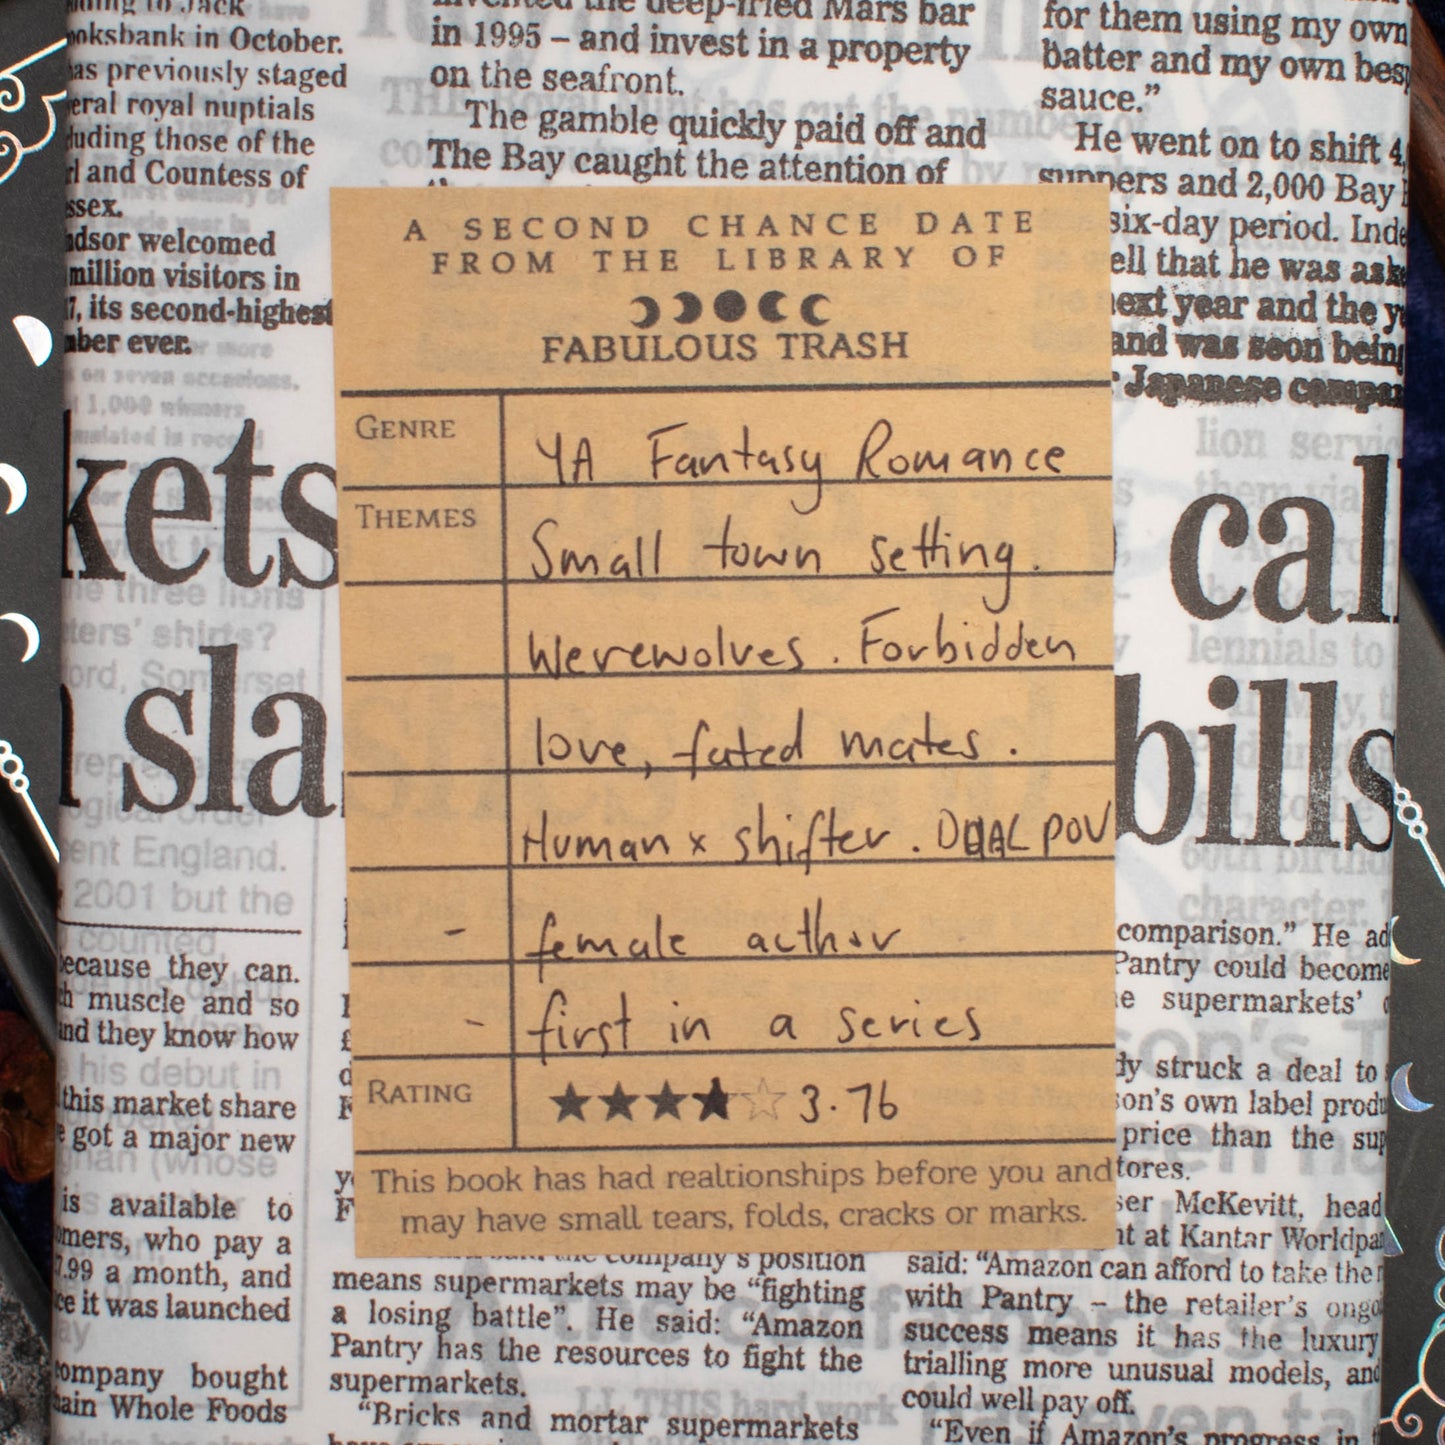 oksbank in October.
as previously staged
eral royal nuptials
luding those of the
rl and Countess of
ssex.
dsor welcomed
million visitors in
7, its second-highest
ber ever.
invented the deep-fried Mars bar
in 1995 – and invest in a property
on the seafront.
The gamble quickly paid off and
The Bay caught the attention of
for them using my own
batter and my own besp
sauce.”
He went on to shift 4,
suppers and 2,000 Bay
six-day period. Inde
ell that he was aske
next year and the y
and was soon being
Japanese compan
A SECOND CHANCE DATE
FROM THE LIBRARY OF
FABULOUS TRASH
GENRE YA Fantasy Romance
THEMES Small town setting.
Werewolves. Forbidden
love, fated mates.
Human x shifter. DUAL POV
- female author
- first in a series
RATING ★★★★☆ 3.76
This book has had realtionships before you and
may have small tears, folds, cracks or marks.
kets
sla
cal
bills
because they can.
h muscle and so
and they know how
this market share
got a major new
is available to
omers, who pay a
7.99 a month, and
ce it was launched
company bought
ain Whole Foods
the company’s position
means supermarkets may be “fighting
a losing battle”. He said: “Amazon
Pantry has the resources to fight the
supermarkets.
“Bricks and mortar supermarkets
comparison.” He ad
Pantry could become
e supermarkets’
dy struck a deal to
son’s own label produ
price than the sup
tores.
ser McKevitt, head
nt at Kantar Worldpa
said: “Amazon can afford to take the
with Pantry – the retailer’s ongo
success means it has the luxury
trialling more unusual models, and
could well pay off.
“Even if Amazon’s progress in